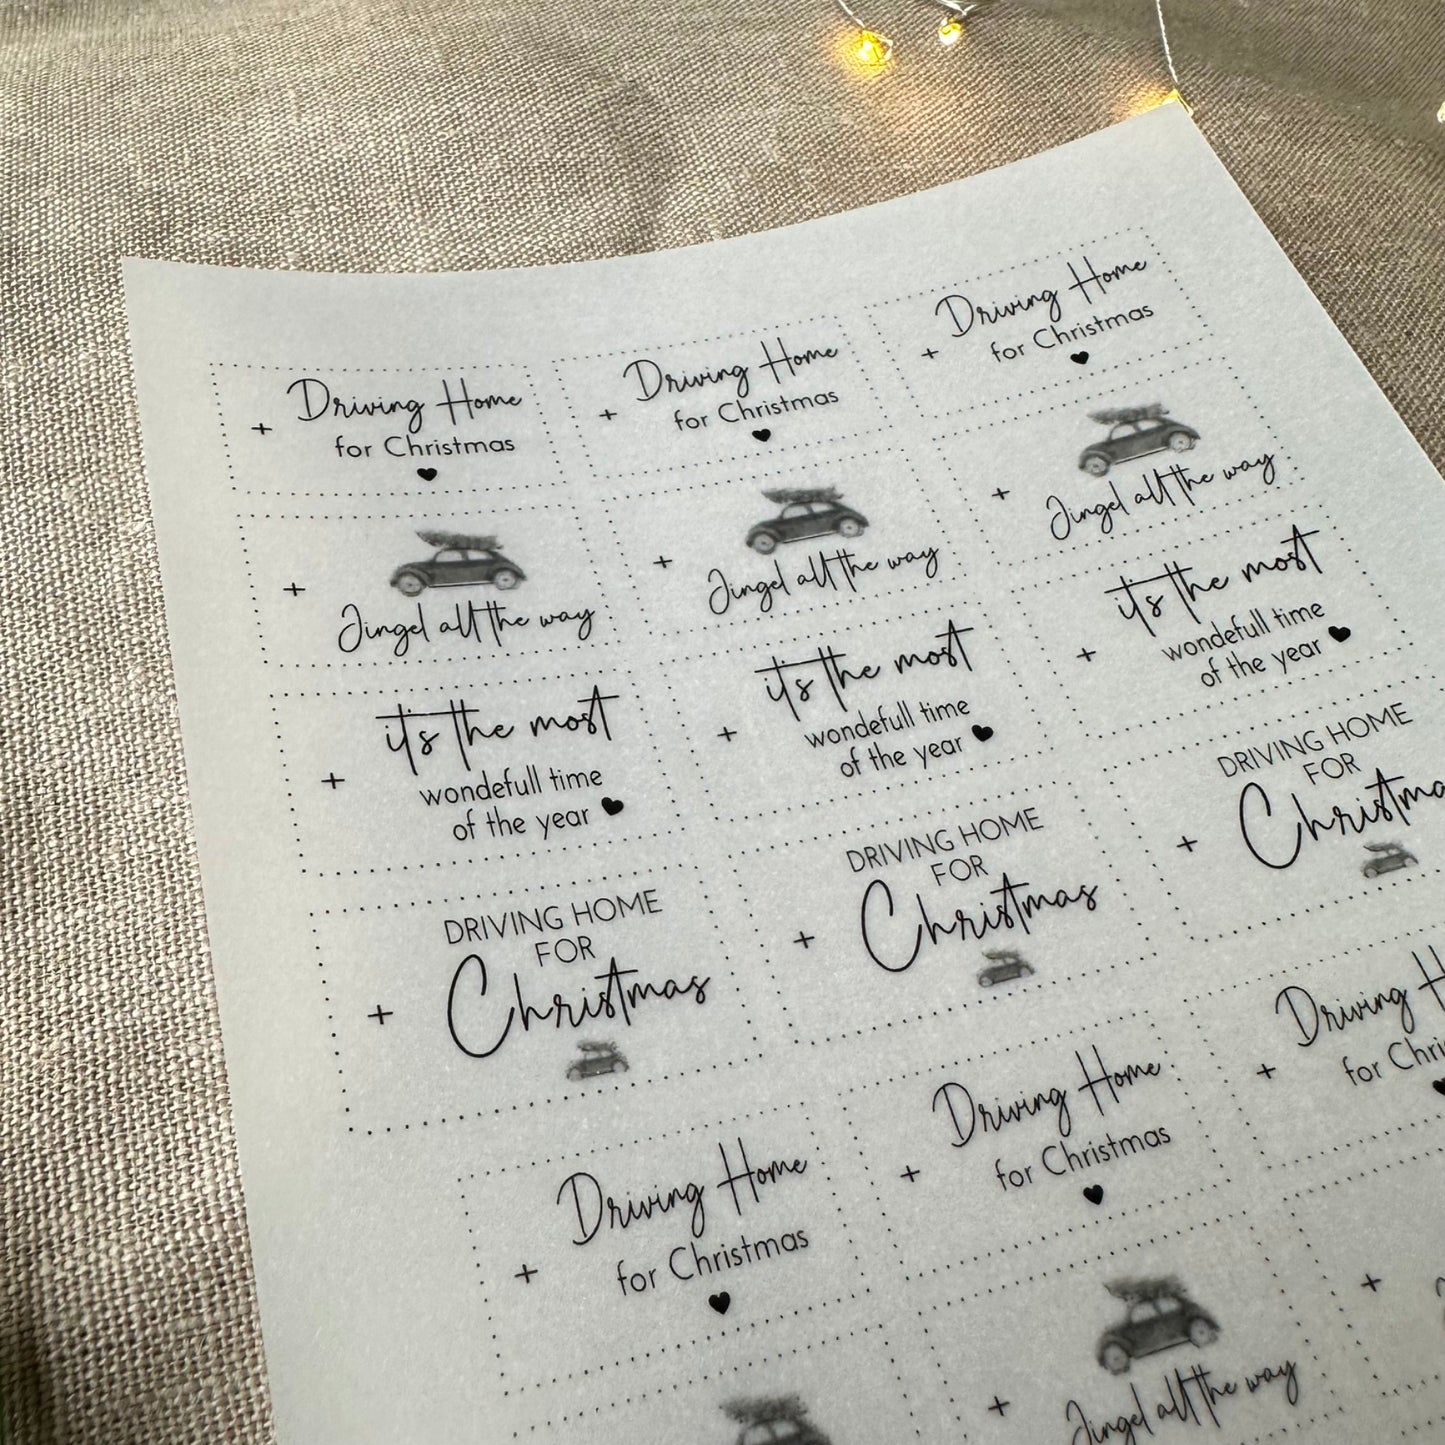 + Driving Home
for Christmas
+ Driving Home
for Christmas
+ Driving Home
for Christmas
+ Jingel all the way
+ Jingel all the way
+ Jingel all the way
it's the most
+ wondefull time
of the year
it's the most
+ wondefull time
of the year
it's the most
+ wondefull time
of the year
DRIVING HOME
FOR
+ Christmas
DRIVING HOME
FOR
+ Christmas
DRIVING HOME
FOR
+ Christma
+ Driving Home
for Christmas
+ Driving Home
for Christmas
+ Driving H
for Chri
+ Jingel all the way
+